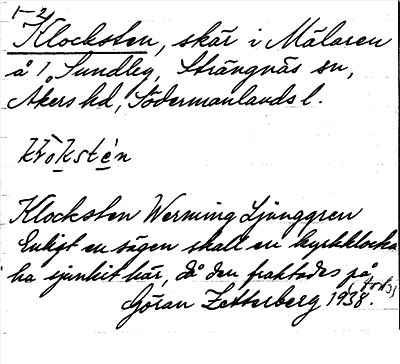 1-2
Klocksten, skär i Mälaren
å 1, Sundby, Strängnäs sn,
Åkers hd, Södermanlands l.
klòkstén
Klocksten Werming Ljunggren
Enligt en sägen skall en kyrkklocka
ha sjunkit här, då den fraktades på
(forts)
Göran Zetterberg 1938.